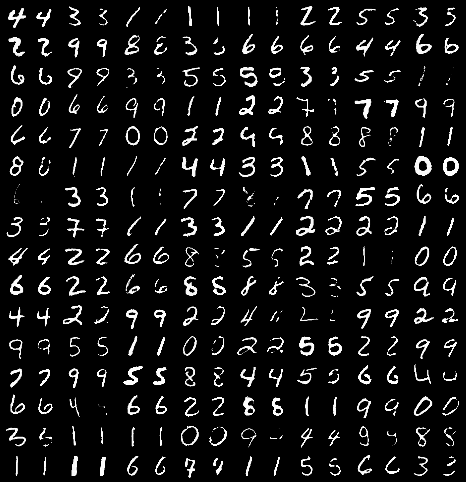 4 4 3 3 1 1 1 1 1 1 2 2 5 5 3 5
2 2 9 9 8 8 3 6 6 6 6 4 4 6 6
6 6 9 9 3 3 5 5 5 9 3 3 5 5 1
0 0 6 6 9 9 1 1 2 2 7 7 7 9 9
6 6 7 7 0 0 2 2 9 9 8 8 8 8 1 1
8 0 1 1 1 1 4 4 3 3 1 1 5 5 0 0
3 3 1 7 7 7 7 5 5 6 6
3 3 7 7 1 1 3 3 1 1 2 2 2 2 1 1
4 4 2 2 6 6 8 5 5 2 2 1 0 0
6 6 2 2 6 6 8 8 8 8 3 3 5 5 9 9
4 4 2 2 9 9 2 2 4 2 9 9 2 2
9 9 5 5 1 1 0 0 2 2 5 5 2 2 9 9
7 7 9 9 5 5 8 8 4 4 5 5 6 6 4
6 6 4 6 6 2 2 8 8 1 1 9 9 0 0
3 1 1 1 1 0 0 9 4 4 9 8 8
1 1 1 1 6 6 7 4 1 1 5 5 6 6 3 3